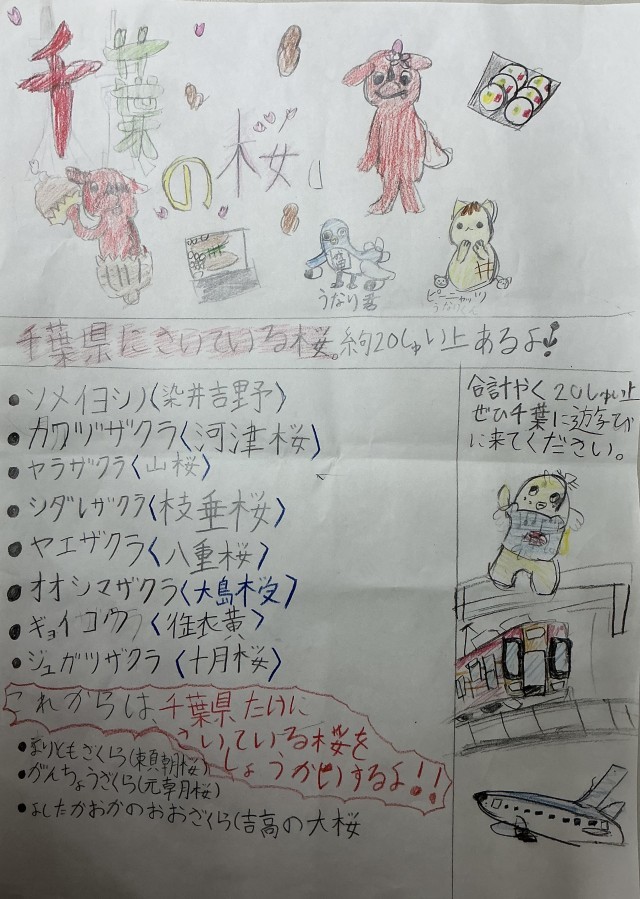 千葉
の桜
うなり君
ピーナッツ
千葉県にさいている桜。約20しゅい上あるよ!
ソメイヨシノ(染井吉野)
カワヅザクラ〈河津桜〉
ヤラザクラ〈山桜〉
シダレザクラ〈枝垂桜〉
ヤエザクラ〈八重桜〉
オオシマザクラ〈大島桜〉
ギョイコウ〈御衣黄〉
ジュガツザクラ〈十月桜〉
合計やく20しゅい上
ぜひ千葉に遊び
に来てください。
これからは、千葉県だけに
さいている桜を
しょうかいするよ!!
よりともざくら(頼朝桜)
がんちょうざくら(元朝桜)
よしたかおかのおおざくら(吉高の大桜